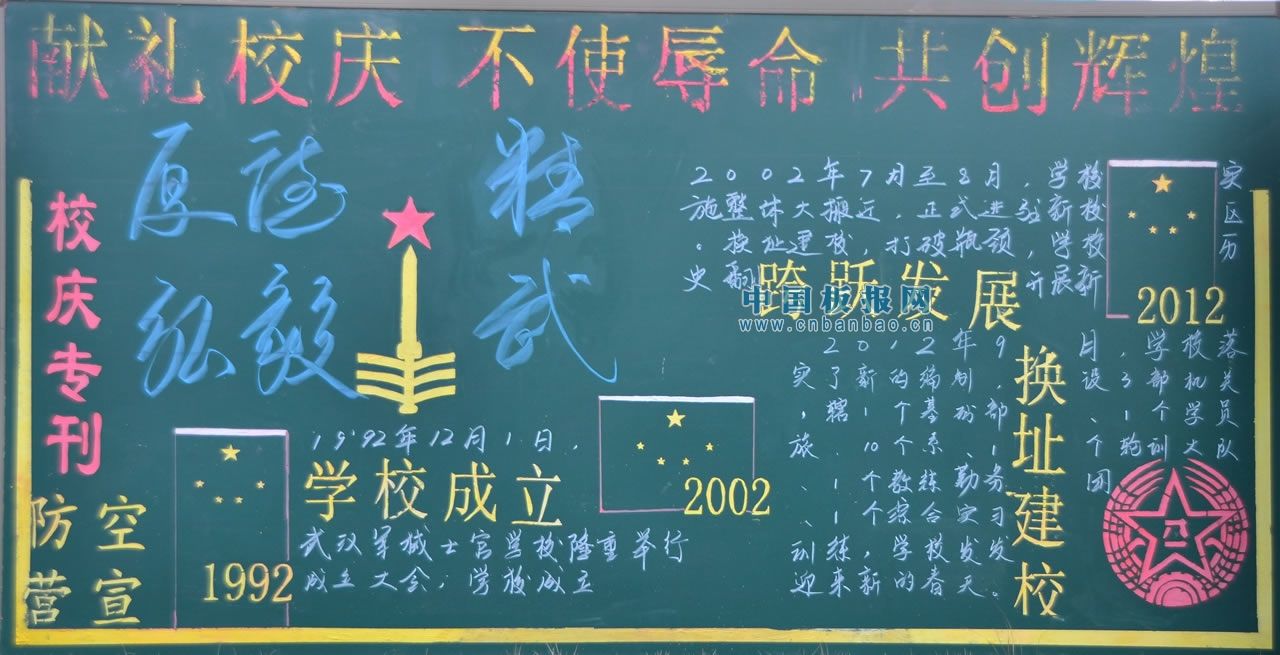 献礼校庆 不使辱命 共创辉煌
校庆专刊
厚德 精
弘毅 武
2002年7月至8月，学校实
施整体大搬迁，正式进驻新校区
。换址建校，打破瓶颈，学校历
史翻 开展新
跨跃发展
中国板报网
www.cnbanbao.cn
2012
2012年9月，学校落
实了新的编制，设3部机关
，辖1个基 部、1个学员
旅、10个系、1个 训大队
、1个教练勤务团
、1个综合实习
训练，学校发发
迎来新的春天。
换址建校
1992年12月1日，
学校成立
武汉军械士官学校隆重举行
成立大会，学校成立
2002
1992
防空
营宣
八一